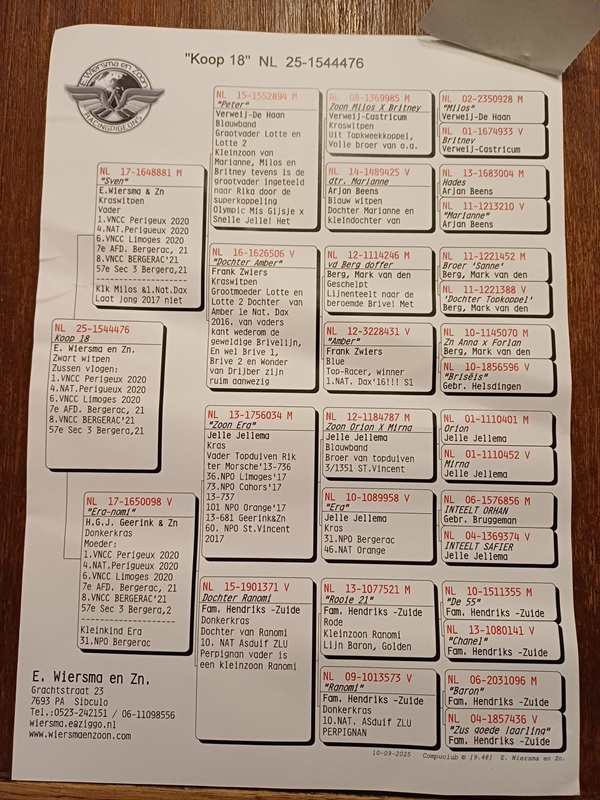 "Koop 18" NL 25-1544476
E. Wiersma en Zoon
RACINGPIGEONS
NL 25-1544476
Koop 18
E. Wiersma en Zn.
Zwart witpen
Zussen vlogen:
1.VNCC Perigeux 2020
4.NAT.Perigeux 2020
6.VNCC Limoges 2020
7e AFD. Bergerac, 21
8.VNCC BERGERAC'21
57e Sec 3 Bergera,21
NL 17-1648881 M
"Sven"
E.Wiersma & Zn
Kraswitpen
Vader
1.VNCC Perigux 2020
4.NAT.Perigux 2020
6.VNCC Limoges 2020
7e AFD. Bergerac, 21
8.VNCC BERGERAC'21
57e Sec 3 Bergera,21
--------------------
Klk Milos &1.Nat.Dax
Laat jong 2017 niet
NL 17-1650098 V
"Era-nomi"
H.G.J. Geerink & Zn
Donkerkras
Moeder:
1.VNCC Perigeux 2020
4.NAT.Perigeux 2020
6.VNCC Limoges 2020
7e AFD. Bergerac, 21
8.VNCC BERGERAC'21
57e Sec 3 Bergera,2
--------------------
Kleinkind Era
31.NPO Bergerac
NL 15-1552894 M
"Peter"
Verweij-De Haan
Blauwband
Grootvader Lotte en
Lotte 2
Kleinzoon van
Marianne, Milos en
Britney tevens is de
grootvader ingeteeld
naar Rika door de
superkoppeling
Olympic Mis Gijsje x
Snelle Jelle! Het
NL 16-1626506 V
"Dochter Amber"
Frank Zwiers
Kraswitpen
Grootmoeder Lotte en
Lotte 2 Dochter van
Amber 1e Nat. Dax
2016. van vaders
kant wederom de
geweldige Brivelijn,
En wel Brive 1,
Brive 2 en Wonder
van Drijber zijn
ruim aanwezig
NL 13-1756034 M
"Zoon Era"
Jelle Jellema
Kras
Vader Topduiven Rik
ter Morsche'13-736
36.NPO Limoges'17
73.NPO Cahors'17
13-737
101 NPO Orange'17
13-681 Geerink&Zn
60. NPO St.Vincent
2017
NL 15-1901371 V
Dochter Ranomi
Fam. Hendriks -Zuide
Donkerkras
Dochter van Ranomi
10. NAT Asduif ZLU
Perpignan vader is
een kleinzoon Ranomi
NL 08-1369985 M
Zoon Milos X Britney
Verweij-Castricum
Kraswitpen
Uit Topkweekkoppel,
Volle broer van o.a.
NL 14-1489425 V
dtr. Marianne
Arjan Beens
Blauw witpen
Dochter Marianne en
Kleindochter van
NL 12-1114246 M
vd Berg doffer
Berg, Mark van den
Geschelpt
Lijnenteelt naar de
beroemde Brive! Met
NL 12-3228431 V
"Amber"
Frank Zwiers
Blue
Top-Racer, winner
1.NAT. Dax'16!!! S1
NL 12-1184787 M
Zoon Orion X Mirna
Jelle Jellema
Blauwband
Broer van topduiven
3/1351 ST.Vincent
NL 10-1089958 V
"Era"
Jelle Jellema
Kras
31.NPO Bergerac
46.NAT Orange
NL 13-1077521 M
"Rooie 21"
Fam. Hendriks -Zuide
Rode
Kleinzoon Ranomi
Lijn Baron, Golden
NL 09-1013573 V
"Ranomi"
Fam. Hendriks -Zuide
Donkerkras
10.NAT. ASduif ZLU
PERPIGNAN
NL 02-2350928 M
"Milos"
Verweij-De Haan
NL 01-1674933 V
Britney
Verweij-Castricum
NL 13-1683004 M
Hades
Arjan Beens
NL 11-1213210 V
"Marianne"
Arjan Beens
NL 11-1221452 M
Broer 'Sanne'
Berg, Mark van den
NL 11-1221388 V
'Dochter Topkoppel'
Berg, Mark van den
NL 10-1145070 M
Zn Anna x Forlan
Berg, Mark van den
NL 10-1856596 V
"Briséis"
Gebr. Helsdingen
NL 01-1110401 M
Orion
Jelle Jellema
NL 01-1110452 V
Mirna
Jelle Jellema
NL 06-1576856 M
INTEELT ORHAN
Gebr. Bruggeman
NL 04-1369374 V
INTEELT SAFIER
Jelle Jellema
NL 10-1511355 M
"De 55"
Fam. Hendriks -Zuide
NL 13-1080141 V
"Chanel"
Fam. Hendriks -Zuide
NL 06-2031096 M
"Baron"
Fam. Hendriks -Zuide
NL 04-1857436 V
"Zus goede jaarling"
Fam. Hendriks -Zuide
E. Wiersma en Zn.
Grachtstraat 23
7693 PA Sibculo
Tel.:0523-242151 / 06-11098556
wiersma.e@ziggo.nl
www.wiersmaenzoon.com
10-09-2025 Compuclub © [9.48] E. Wiersma en Zn.